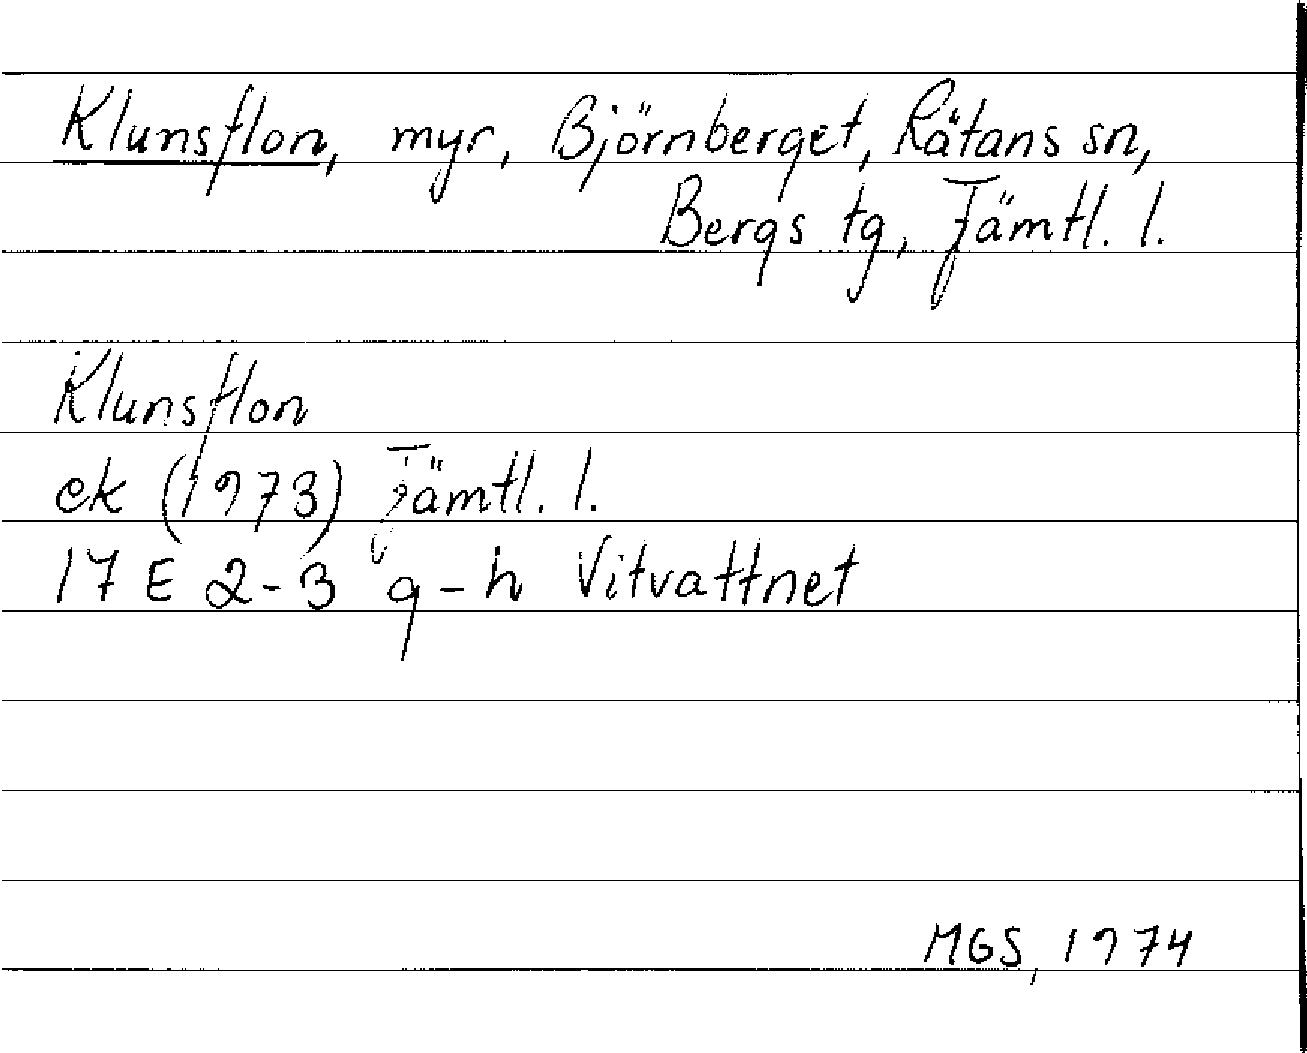 Klunsflon, myr, Björnberget, Rätans sn,
Bergs tg, Jämtl. l.
Klunsflon
ek (1973) Jämtl. l.
17 E 2-3 g-h Vitvattnet
MGS, 1974